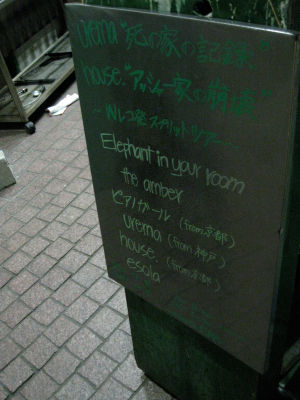 urema "死の家の記録"
house. "アッシャー家の崩壊"
~Wレコ発スプリットツアー~
Elephant in your room
the amber
ピアノガール (from京都)
urema (from神戸)
house. (from京都)
esola